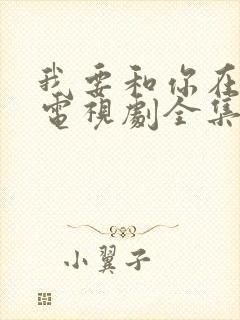 我要和你在
電視劇全集
小翼子